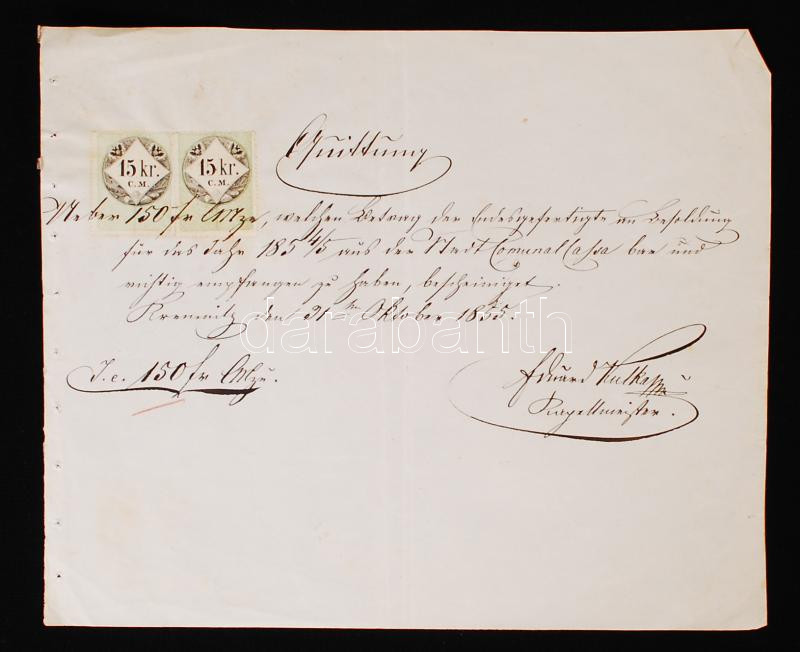 Quittung
15 kr. 15 kr.
C.M. C.M.
Ueber 150 fr CMze, welchen Betrag der Endesgefertigte an Besoldung
für das Jahr 185 4/5 aus der Stadt Comunal Cassa bar und
richtig empfangen zu haben, bescheiniget.
Kremnitz den 31ten Oktober 1855.
I.e. 150 fr CMze.
Eduard
Kapellmeister.
darabanth